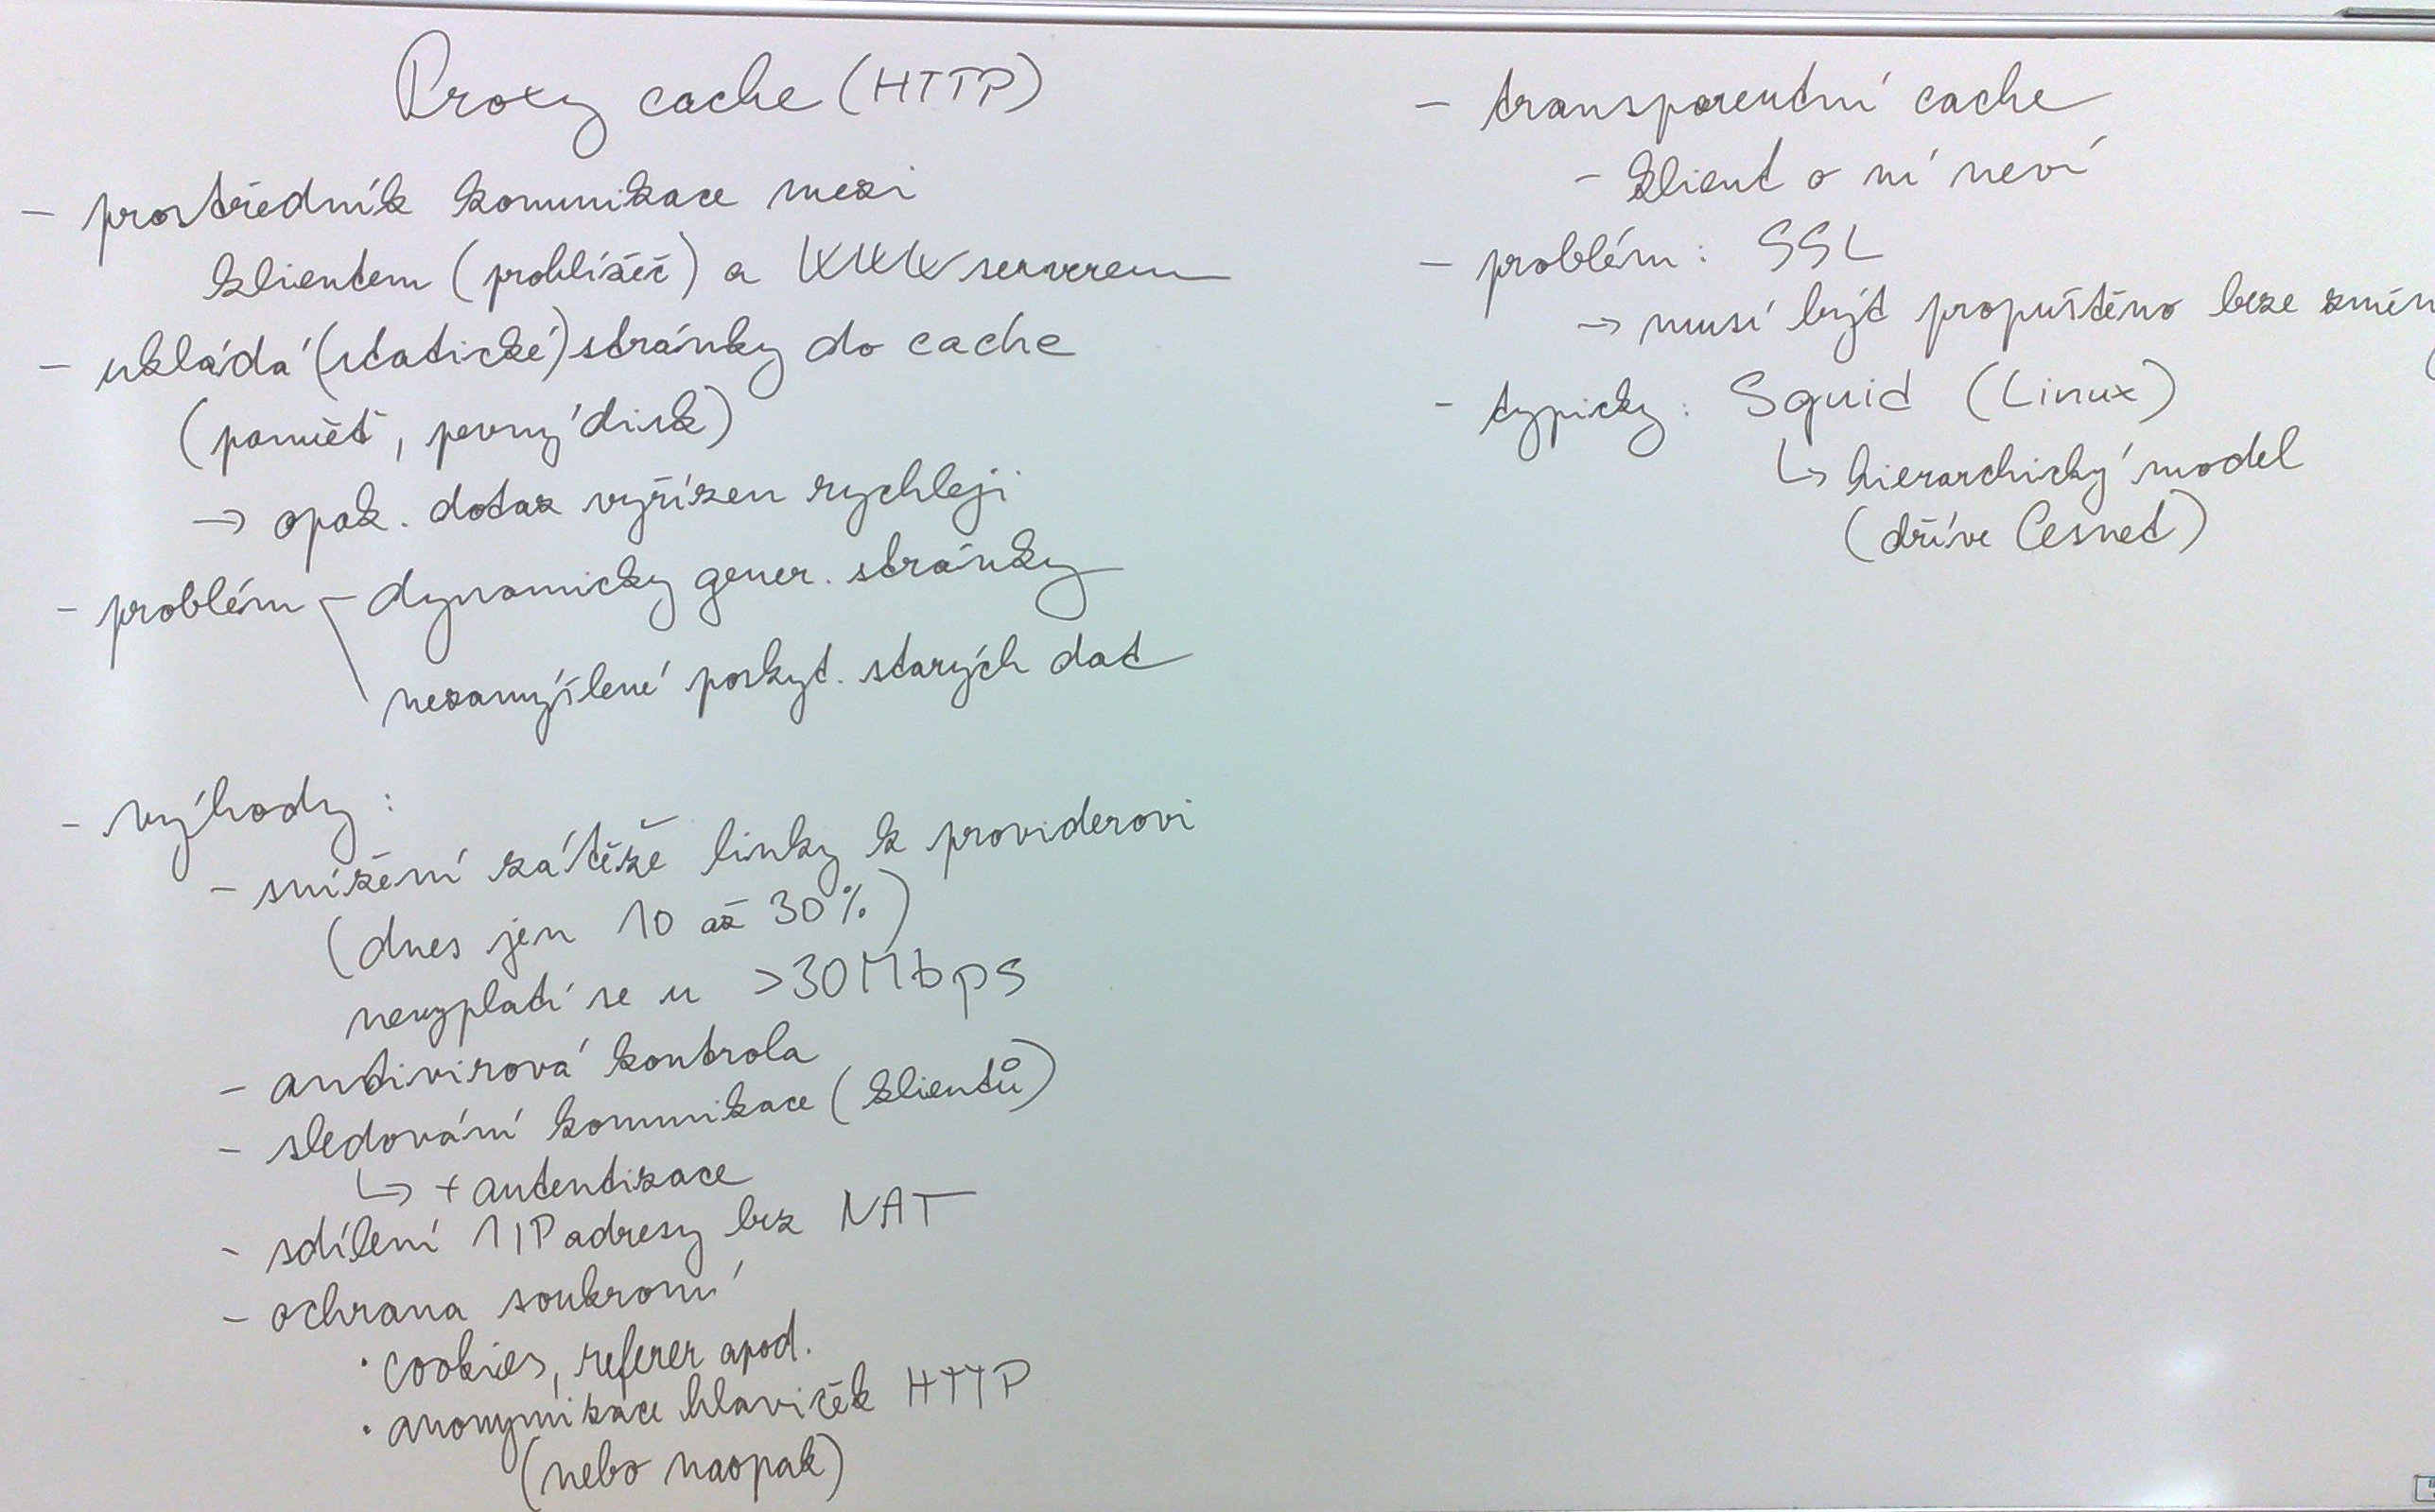 Proxy cache (HTTP)
- prostředník komunikace mezi
klientem (prohlížeč) a WWW serverem
- ukládá (statické) stránky do cache
(paměť, pevný disk)
→ opak. dotaz vyřízen rychleji
- problém - dynamicky gener. stránky
nezamýšlené poskyt. starých dat
- výhody:
- snížení zátěže linky k providerovi
(dnes jen 10 až 30%)
nevyplatí se u >30Mbps
- antivirová kontrola
- sledování komunikace (klientů)
↳ + autentizace
- sdílení 1 IP adresy bez NAT
- ochrana soukromí
· cookies, referer apod.
· anonymizace hlaviček HTTP
(nebo naopak)
- transparentní cache
- klient o ní neví
- problém: SSL
→ musí být propuštěno beze změn
- typicky: Squid (Linux)
↳ hierarchický model
(dříve Cesnet)